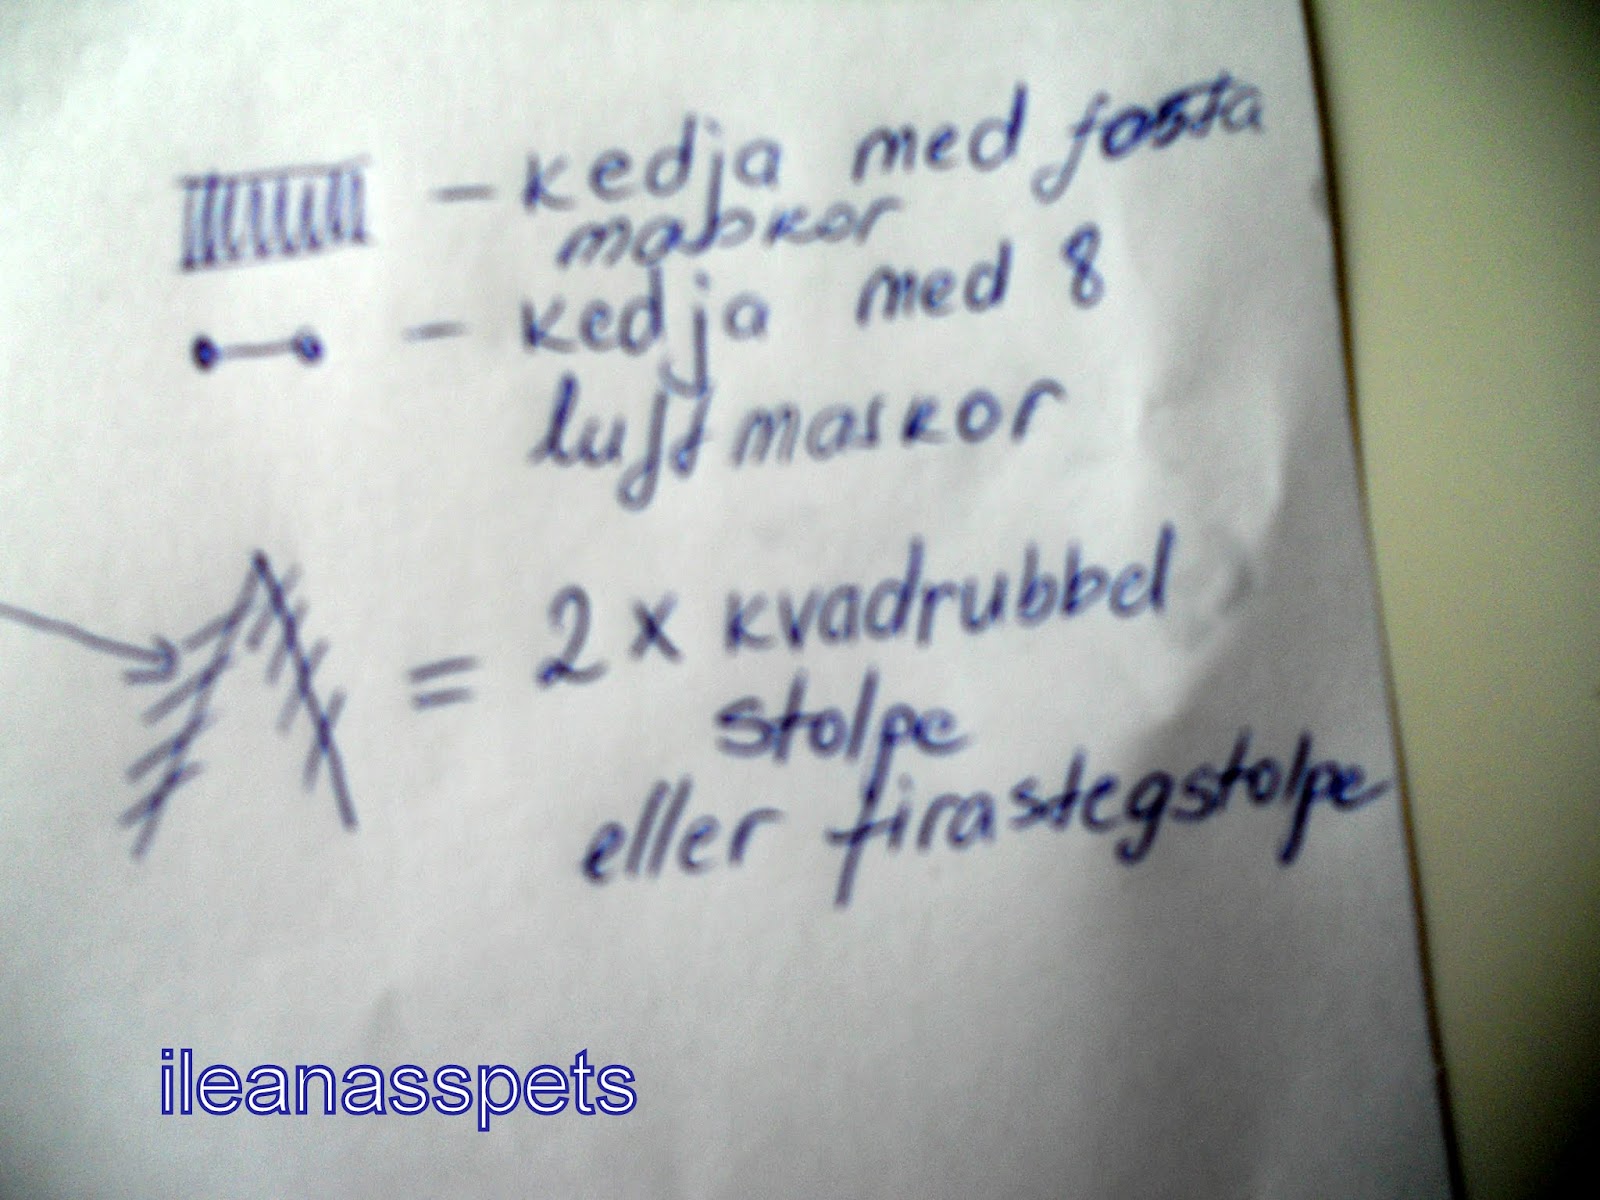 - kedja med fasta
maskor
- kedja med 8
luftmaskor
= 2 x kvadrubbel
stolpe
eller firastegstolpe
ileanasspets